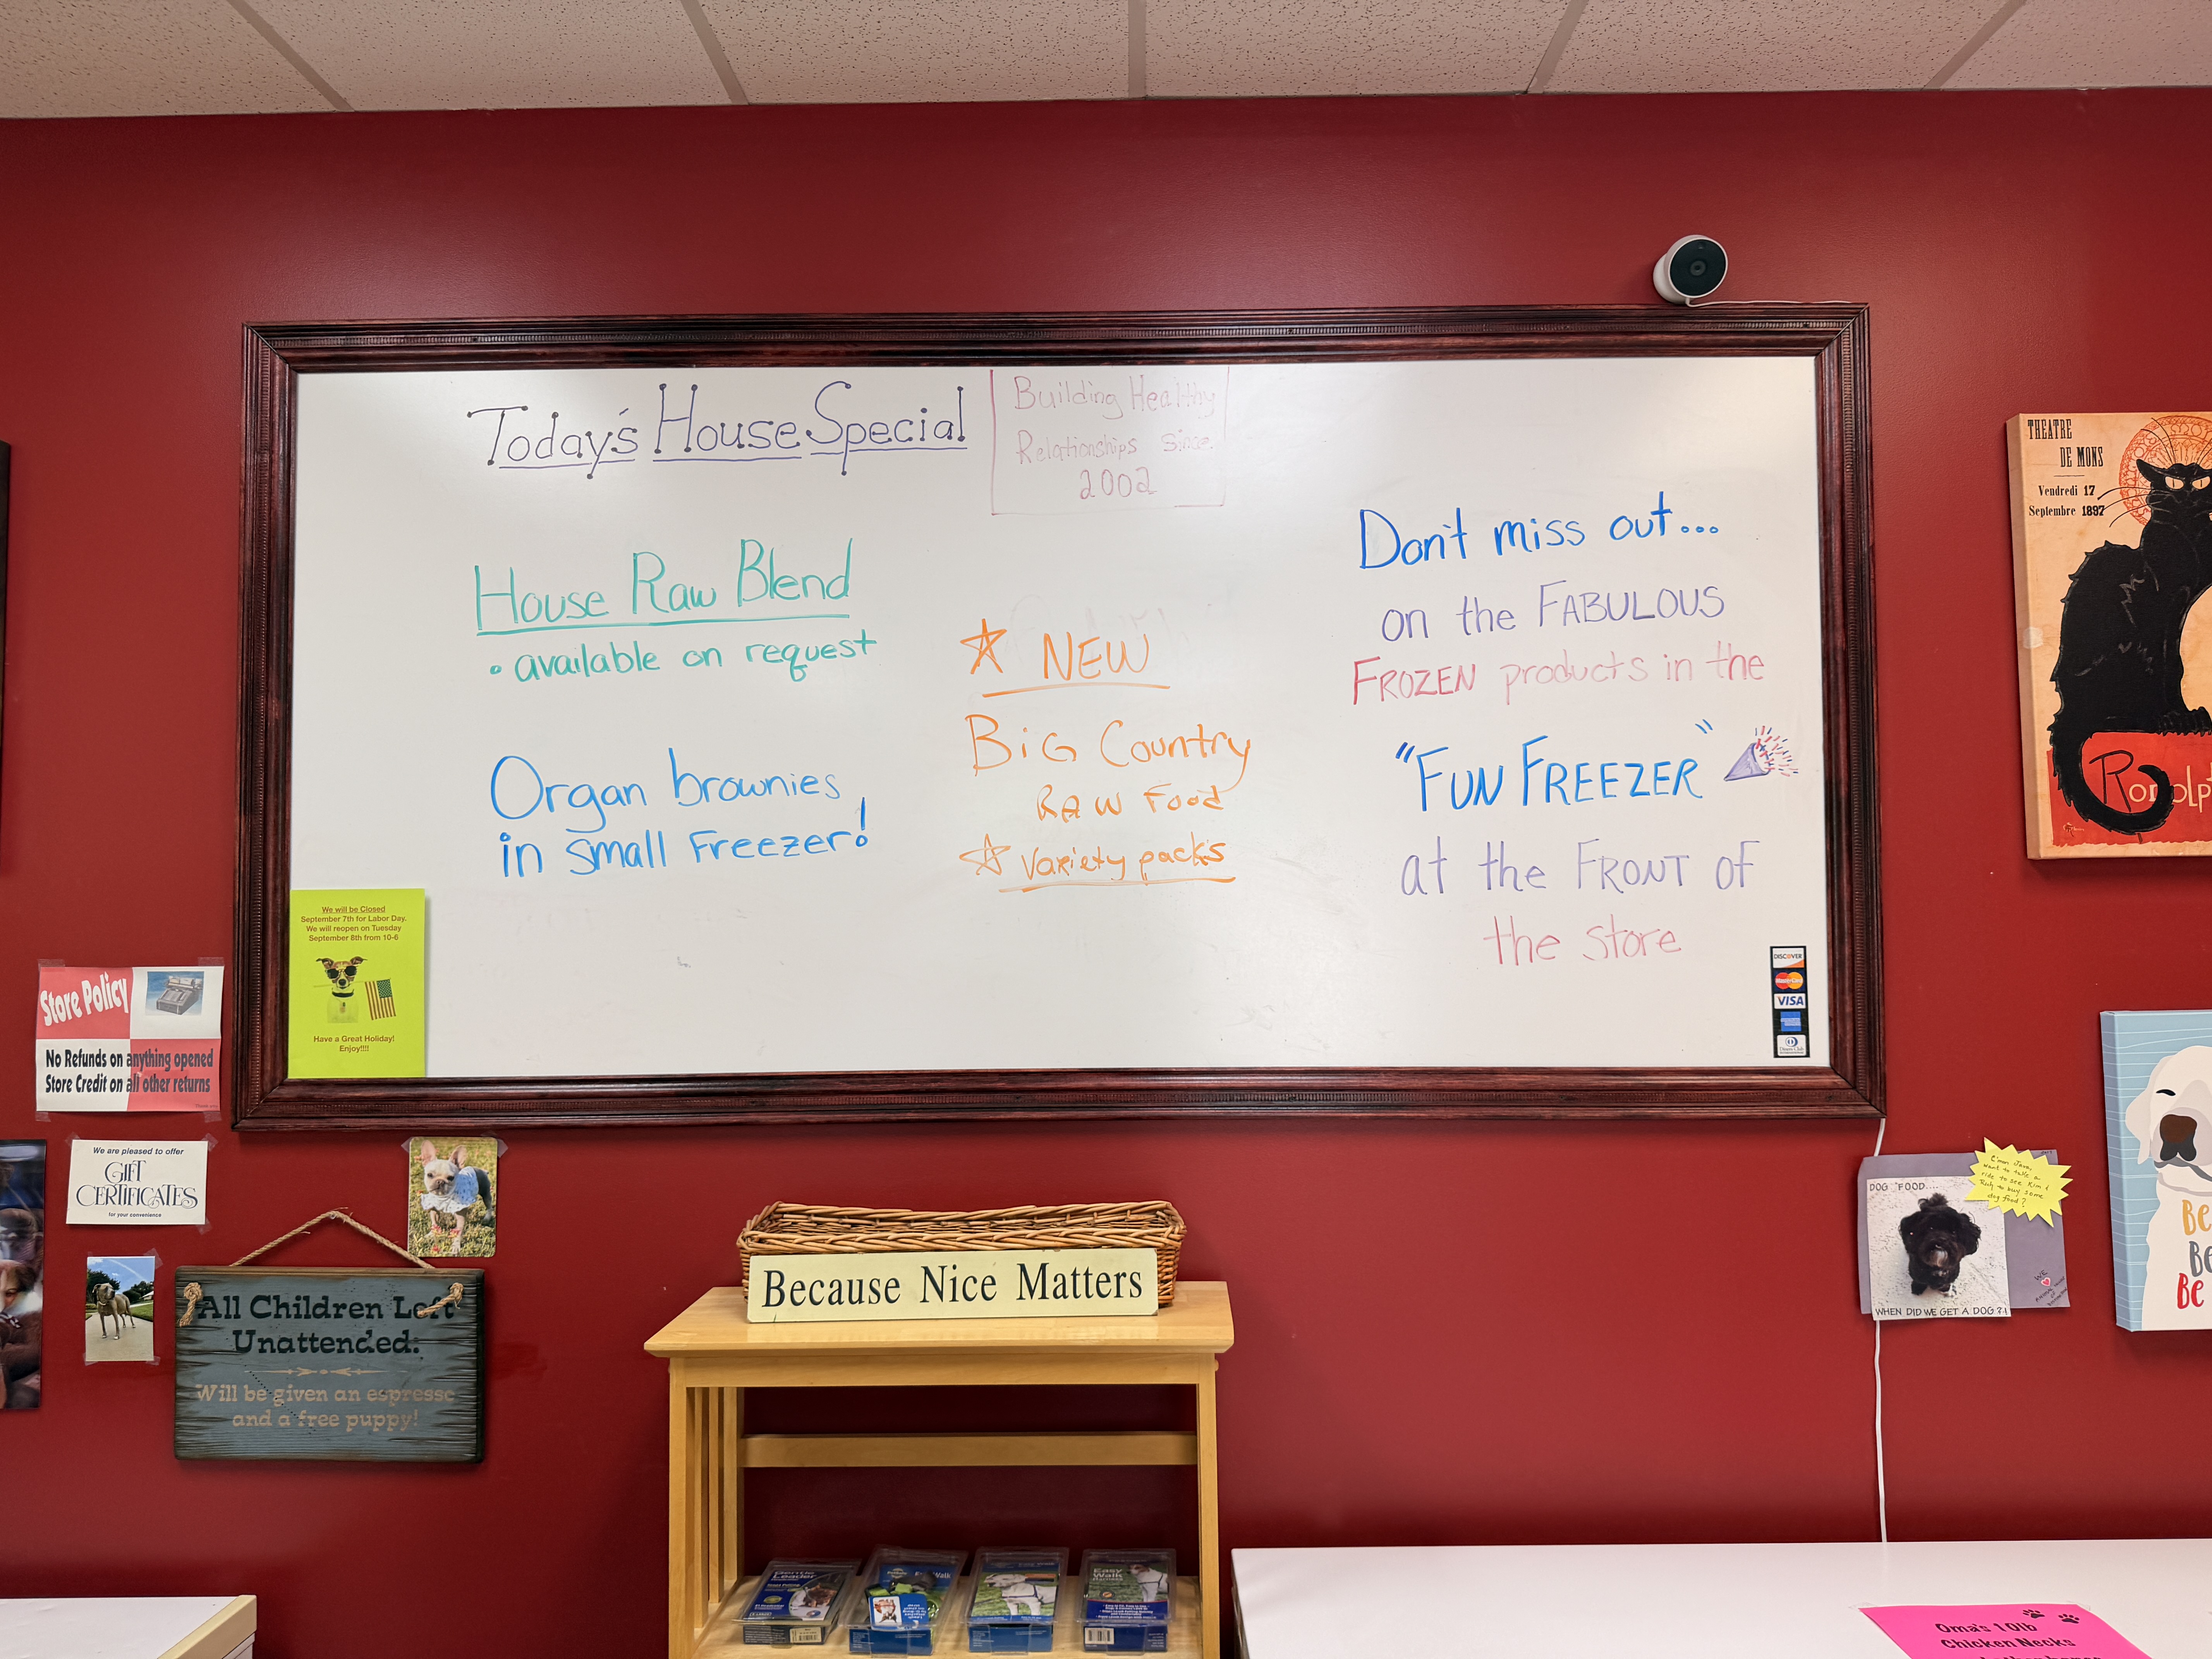 Today's House Special
Building Healthy
Relationships since
2002
House Raw Blend
• available on request
Organ brownies
in small Freezer!
NEW
BiG Country
RAW Food
Variety packs
Don't miss out...
on the FABULOUS
FROZEN products in the
"FUN FREEZER"
at the FRONT of
the Store
We will be Closed
September 7th for Labor Day.
We will reopen on Tuesday
September 8th from 10-6
Have a Great Holiday!
Enjoy!!!!
DISCOVER
MasterCard
VISA
Diners Club
THEATRE
DE MONS
Vendredi 17
Septembre 1897
Rodolp
Store Policy
No Refunds on anything opened
Store Credit on all other returns
We are pleased to offer
GIFT
CERTIFICATES
for your convenience
All Children Left
Unattended:
Will be given an espresso
and a free puppy!
Because Nice Matters
DOG FOOD....
WHEN DID WE GET A DOG ?!
C'mon Java,
want to take a
ride to see Kim &
Rudy to buy some
dog food?
WE
Be
Be
Be
Gentle
Leader
Easy
Walk
Oma's 10lb
Chicken Necks